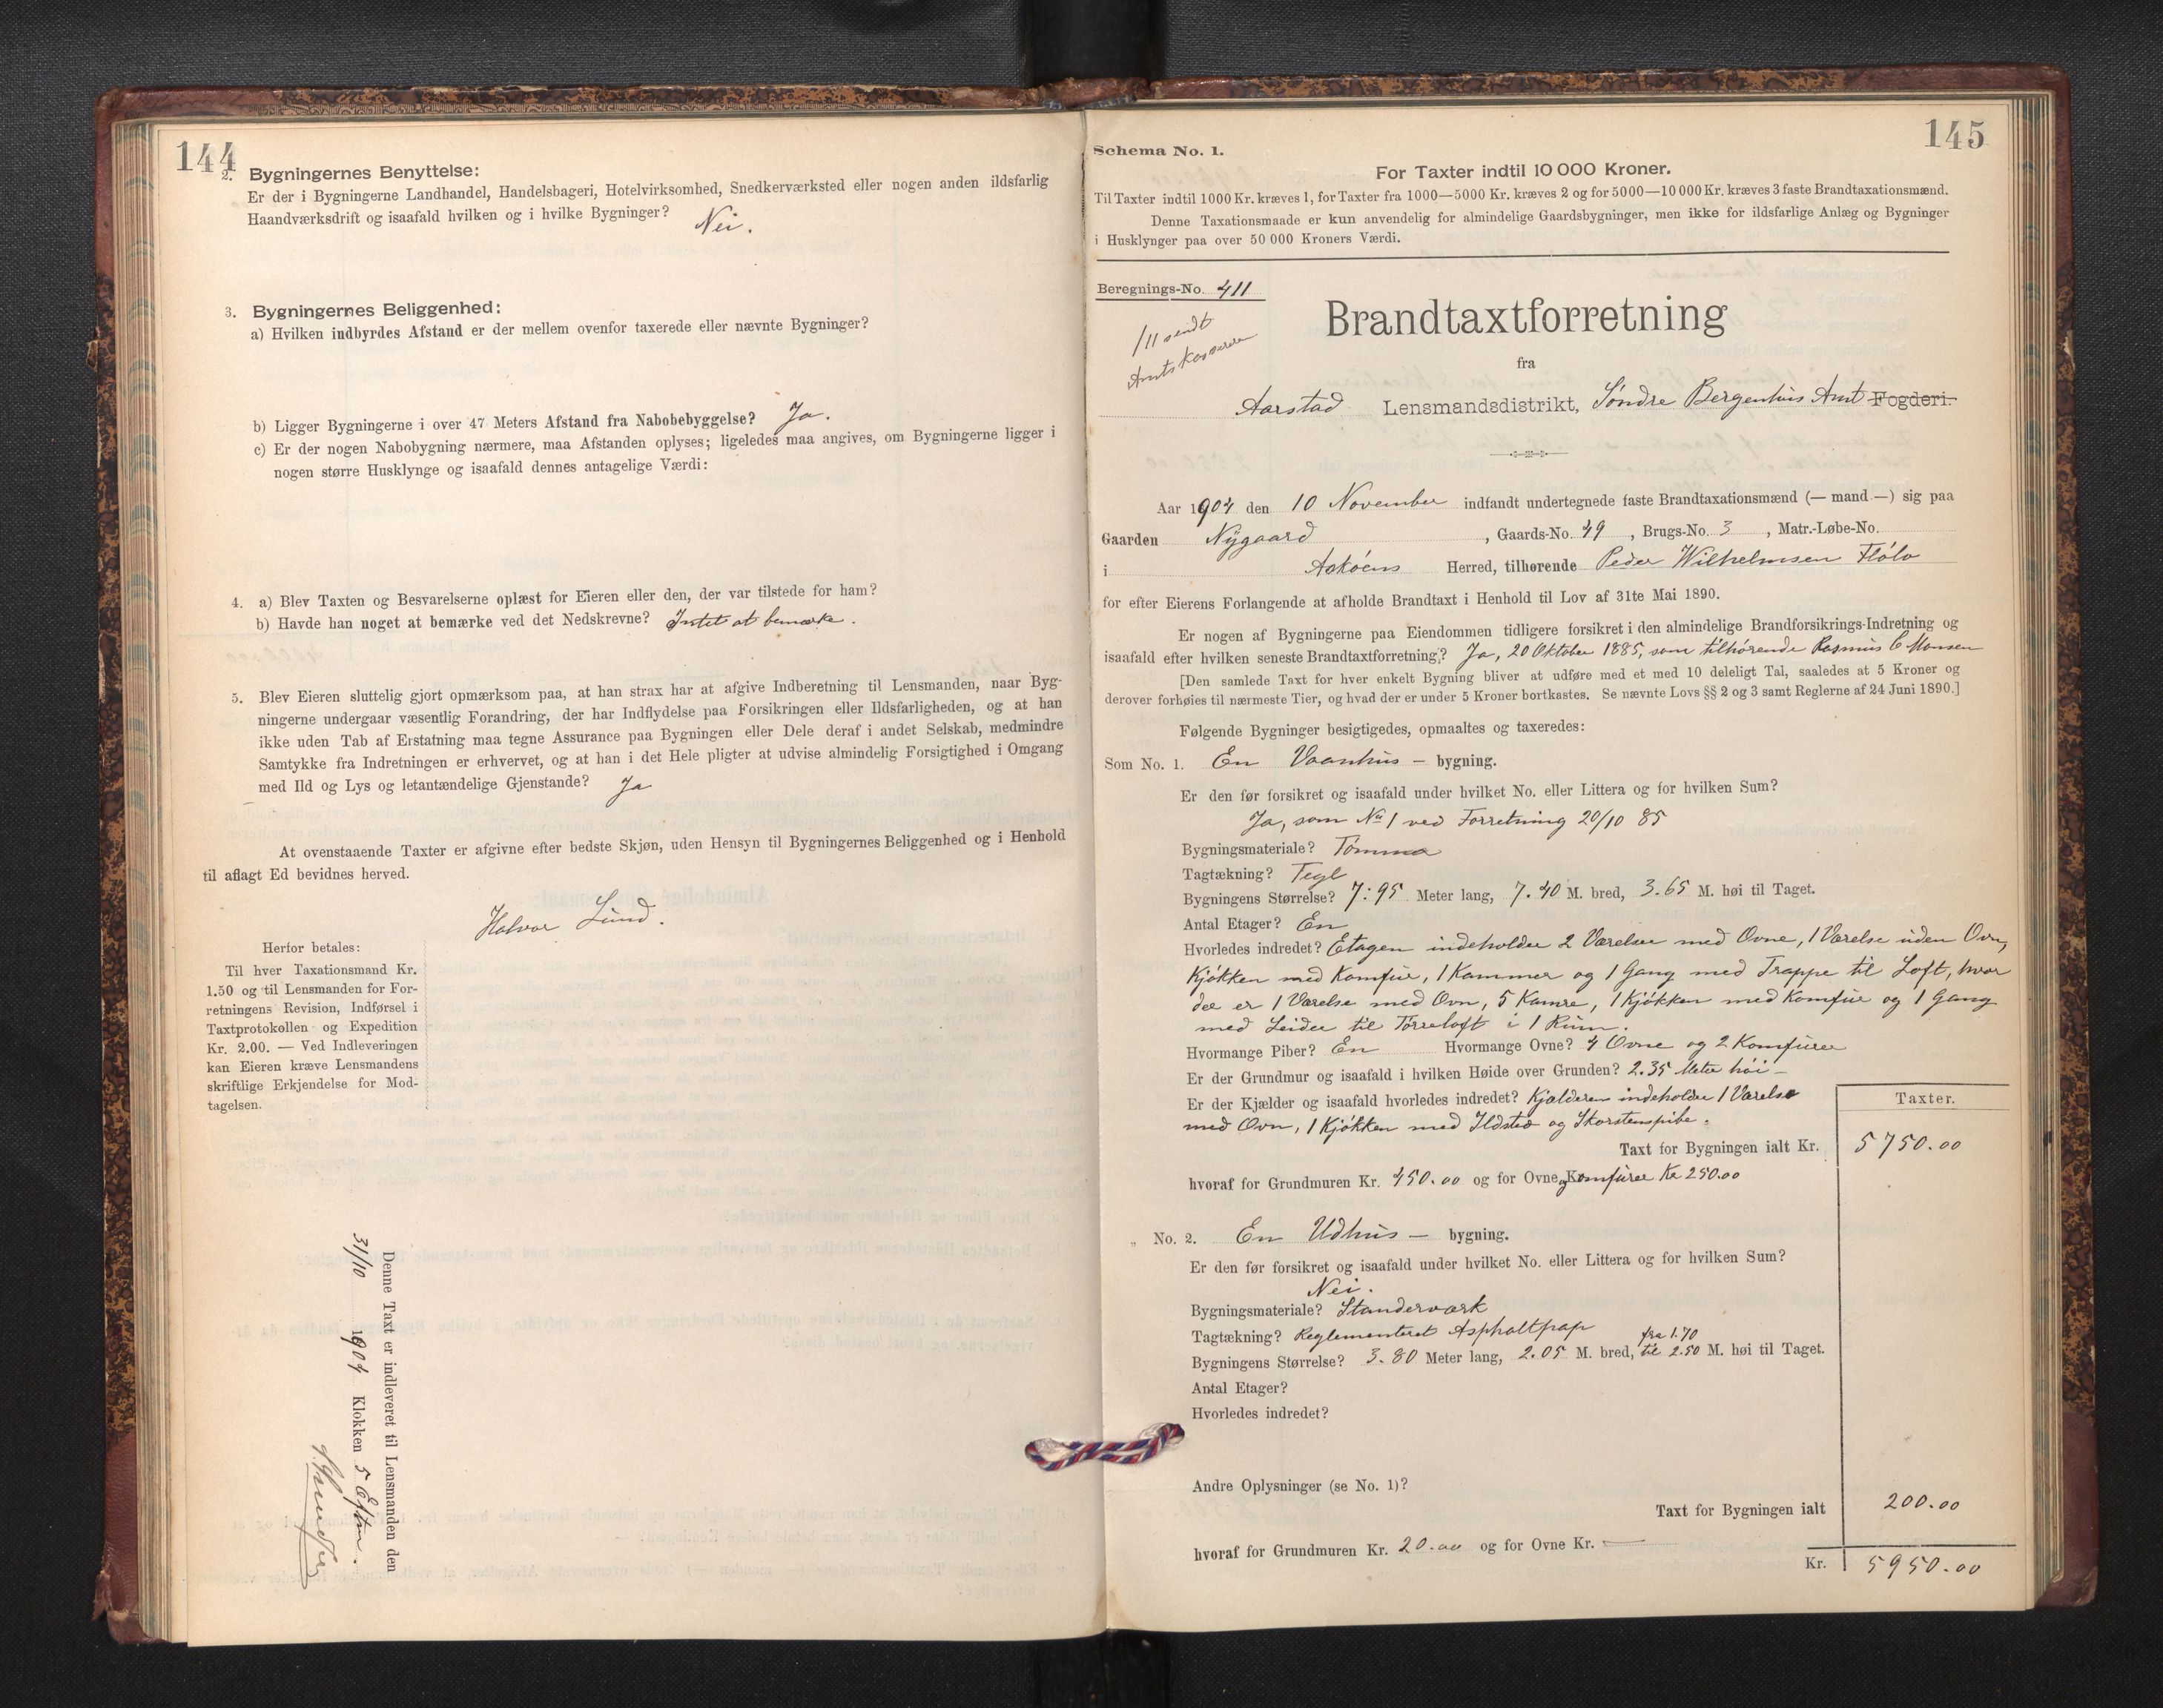 144
2. Bygningernes Benyttelse:
Er der i Bygningerne Landhandel, Handelsbageri, Hotelvirksomhed, Snedkerværksted eller nogen anden ildsfarlig
Haandværksdrift og isaafald hvilken og i hvilke Bygninger? Nei.
3. Bygningernes Beliggenhed:
a) Hvilken indbyrdes Afstand er der mellem ovenfor taxerede eller nævnte Bygninger?
b) Ligger Bygningerne i over 47 Meters Afstand fra Nabobebyggelse? Ja.
c) Er der nogen Nabobygning nærmere, maa Afstanden oplyses; ligeledes maa angives, om Bygningerne ligger i
nogen større Husklynge og isaafald dennes antagelige Værdi:
4. a) Blev Taxten og Besvarelserne oplæst for Eieren eller den, der var tilstede for ham?
b) Havde han noget at bemærke ved det Nedskrevne? Intet at bemærke.
5. Blev Eieren sluttelig gjort opmærksom paa, at han strax har at afgive Indberetning til Lensmanden, naar Byg-
ningerne undergaar væsentlig Forandring, der har Indflydelse paa Forsikringen eller Ildsfarligheden, og at han
ikke uden Tab af Erstatning maa tegne Assurance paa Bygningen eller Dele deraf i andet Selskab, medmindre
Samtykke fra Indretningen er erhvervet, og at han i det Hele pligter at udvise almindelig Forsigtighed i Omgang
med Ild og Lys og letantændelige Gjenstande? Ja
At ovenstaaende Taxter er afgivne efter bedste Skjøn, uden Hensyn til Bygningernes Beliggenhed og i Henhold
til aflagt Ed bevidnes herved.
Halvor Lund.
Herfor betales:
Til hver Taxationsmand Kr.
1.50 og til Lensmanden for For-
retningens Revision, Indførsel i
Taxtprotokollen og Expedition
Kr. 2.00. — Ved Indleveringen
kan Eieren kræve Lensmandens
skriftlige Erkjendelse for Mod-
tagelsen.
Denne Taxt er indleveret til Lensmanden den
31/10 1904 Klokken 5 Eftm.
145
Schema No. 1.
For Taxter indtil 10 000 Kroner.
Til Taxter indtil 1000 Kr. kræves 1, for Taxter fra 1000—5000 Kr. kræves 2 og for 5000—10 000 Kr. kræves 3 faste Brandtaxationsmænd.
Denne Taxationsmaade er kun anvendelig for almindelige Gaardsbygninger, men ikke for ildsfarlige Anlæg og Bygninger
i Husklynger paa over 50 000 Kroners Værdi.
Beregnings-No. 411
/11 sendt
Amtskassereren
Brandtaxtforretning
fra
Aarstad Lensmandsdistrikt, Søndre Bergenhus Amt Fogderi.
Aar 1904 den 10 November indfandt undertegnede faste Brandtaxationsmænd (— mand —) sig paa
Gaarden Nygaard, Gaards-No. 49, Brugs-No. 3, Matr.-Løbe-No.
i Askøens Herred, tilhørende Peder Wilhelmsen Flólo
for efter Eierens Forlangende at afholde Brandtaxt i Henhold til Lov af 31te Mai 1890.
Er nogen af Bygningerne paa Eiendommen tidligere forsikret i den almindelige Brandforsikrings-Indretning og
isaafald efter hvilken seneste Brandtaxtforretning? Ja, 20 Oktober 1885, som tilhørende Rasmus C Monsen
[Den samlede Taxt for hver enkelt Bygning bliver at udføre med et med 10 deleligt Tal, saaledes at 5 Kroner og
derover forhøies til nærmeste Tier, og hvad der er under 5 Kroner bortkastes. Se nævnte Lovs §§ 2 og 3 samt Reglerne af 24 Juni 1890.]
Følgende Bygninger besigtigedes, opmaaltes og taxeredes:
Som No. 1. En Vaanhus — bygning.
Er den før forsikret og isaafald under hvilket No. eller Littera og for hvilken Sum?
Ja, som No 1 ved Forretning 20/10 85
Bygningsmateriale? Tømmer
Tagtækning? Tegl
Bygningens Størrelse? 7.95 Meter lang, 7.40 M. bred, 3.65 M. høi til Taget.
Antal Etager? En
Hvorledes indredet? Etagen indeholder 2 Værelser med Ovne, 1 Værelse uden Ovn,
Kjøkken med Komfur, 1 Kammer og 1 Gang med Trappe til Loft, hvor
der er 1 Værelse med Ovn, 5 Kamre, 1 Kjøkken med Komfur og 1 Gang
med Leider til Tørreloft i 1 Rum.
Hvormange Piber? En Hvormange Ovne? 4 Ovne og 2 Komfurer
Er der Grundmur og isaafald i hvilken Høide over Grunden? 2.35 Meter høi —
Er der Kjælder og isaafald hvorledes indredet? Kjælderen indeholder 1 Værelse
med Ovn, 1 Kjøkken med Ildsted og Skorstenspibe.
Taxter.
Taxt for Bygningen ialt Kr. 5750.00
hvoraf for Grundmuren Kr. 450.00 og for Ovne og Komfurer Kr 250.00
" No. 2. En Udhus — bygning.
Er den før forsikret og isaafald under hvilket No. eller Littera og for hvilken Sum?
Nei.
Bygningsmateriale? Standerværk
Tagtækning? Reglementeret Asphaltpap
Bygningens Størrelse? 3.80 Meter lang, 2.05 M. bred, fra 1.70 til 2.50 M. høi til Taget.
Antal Etager?
Hvorledes indredet?
Andre Oplysninger (se No. 1)?
Taxt for Bygningen ialt 200.00
hvoraf for Grundmuren Kr. 20.00 og for Ovne Kr. —
Kr. 5950.00